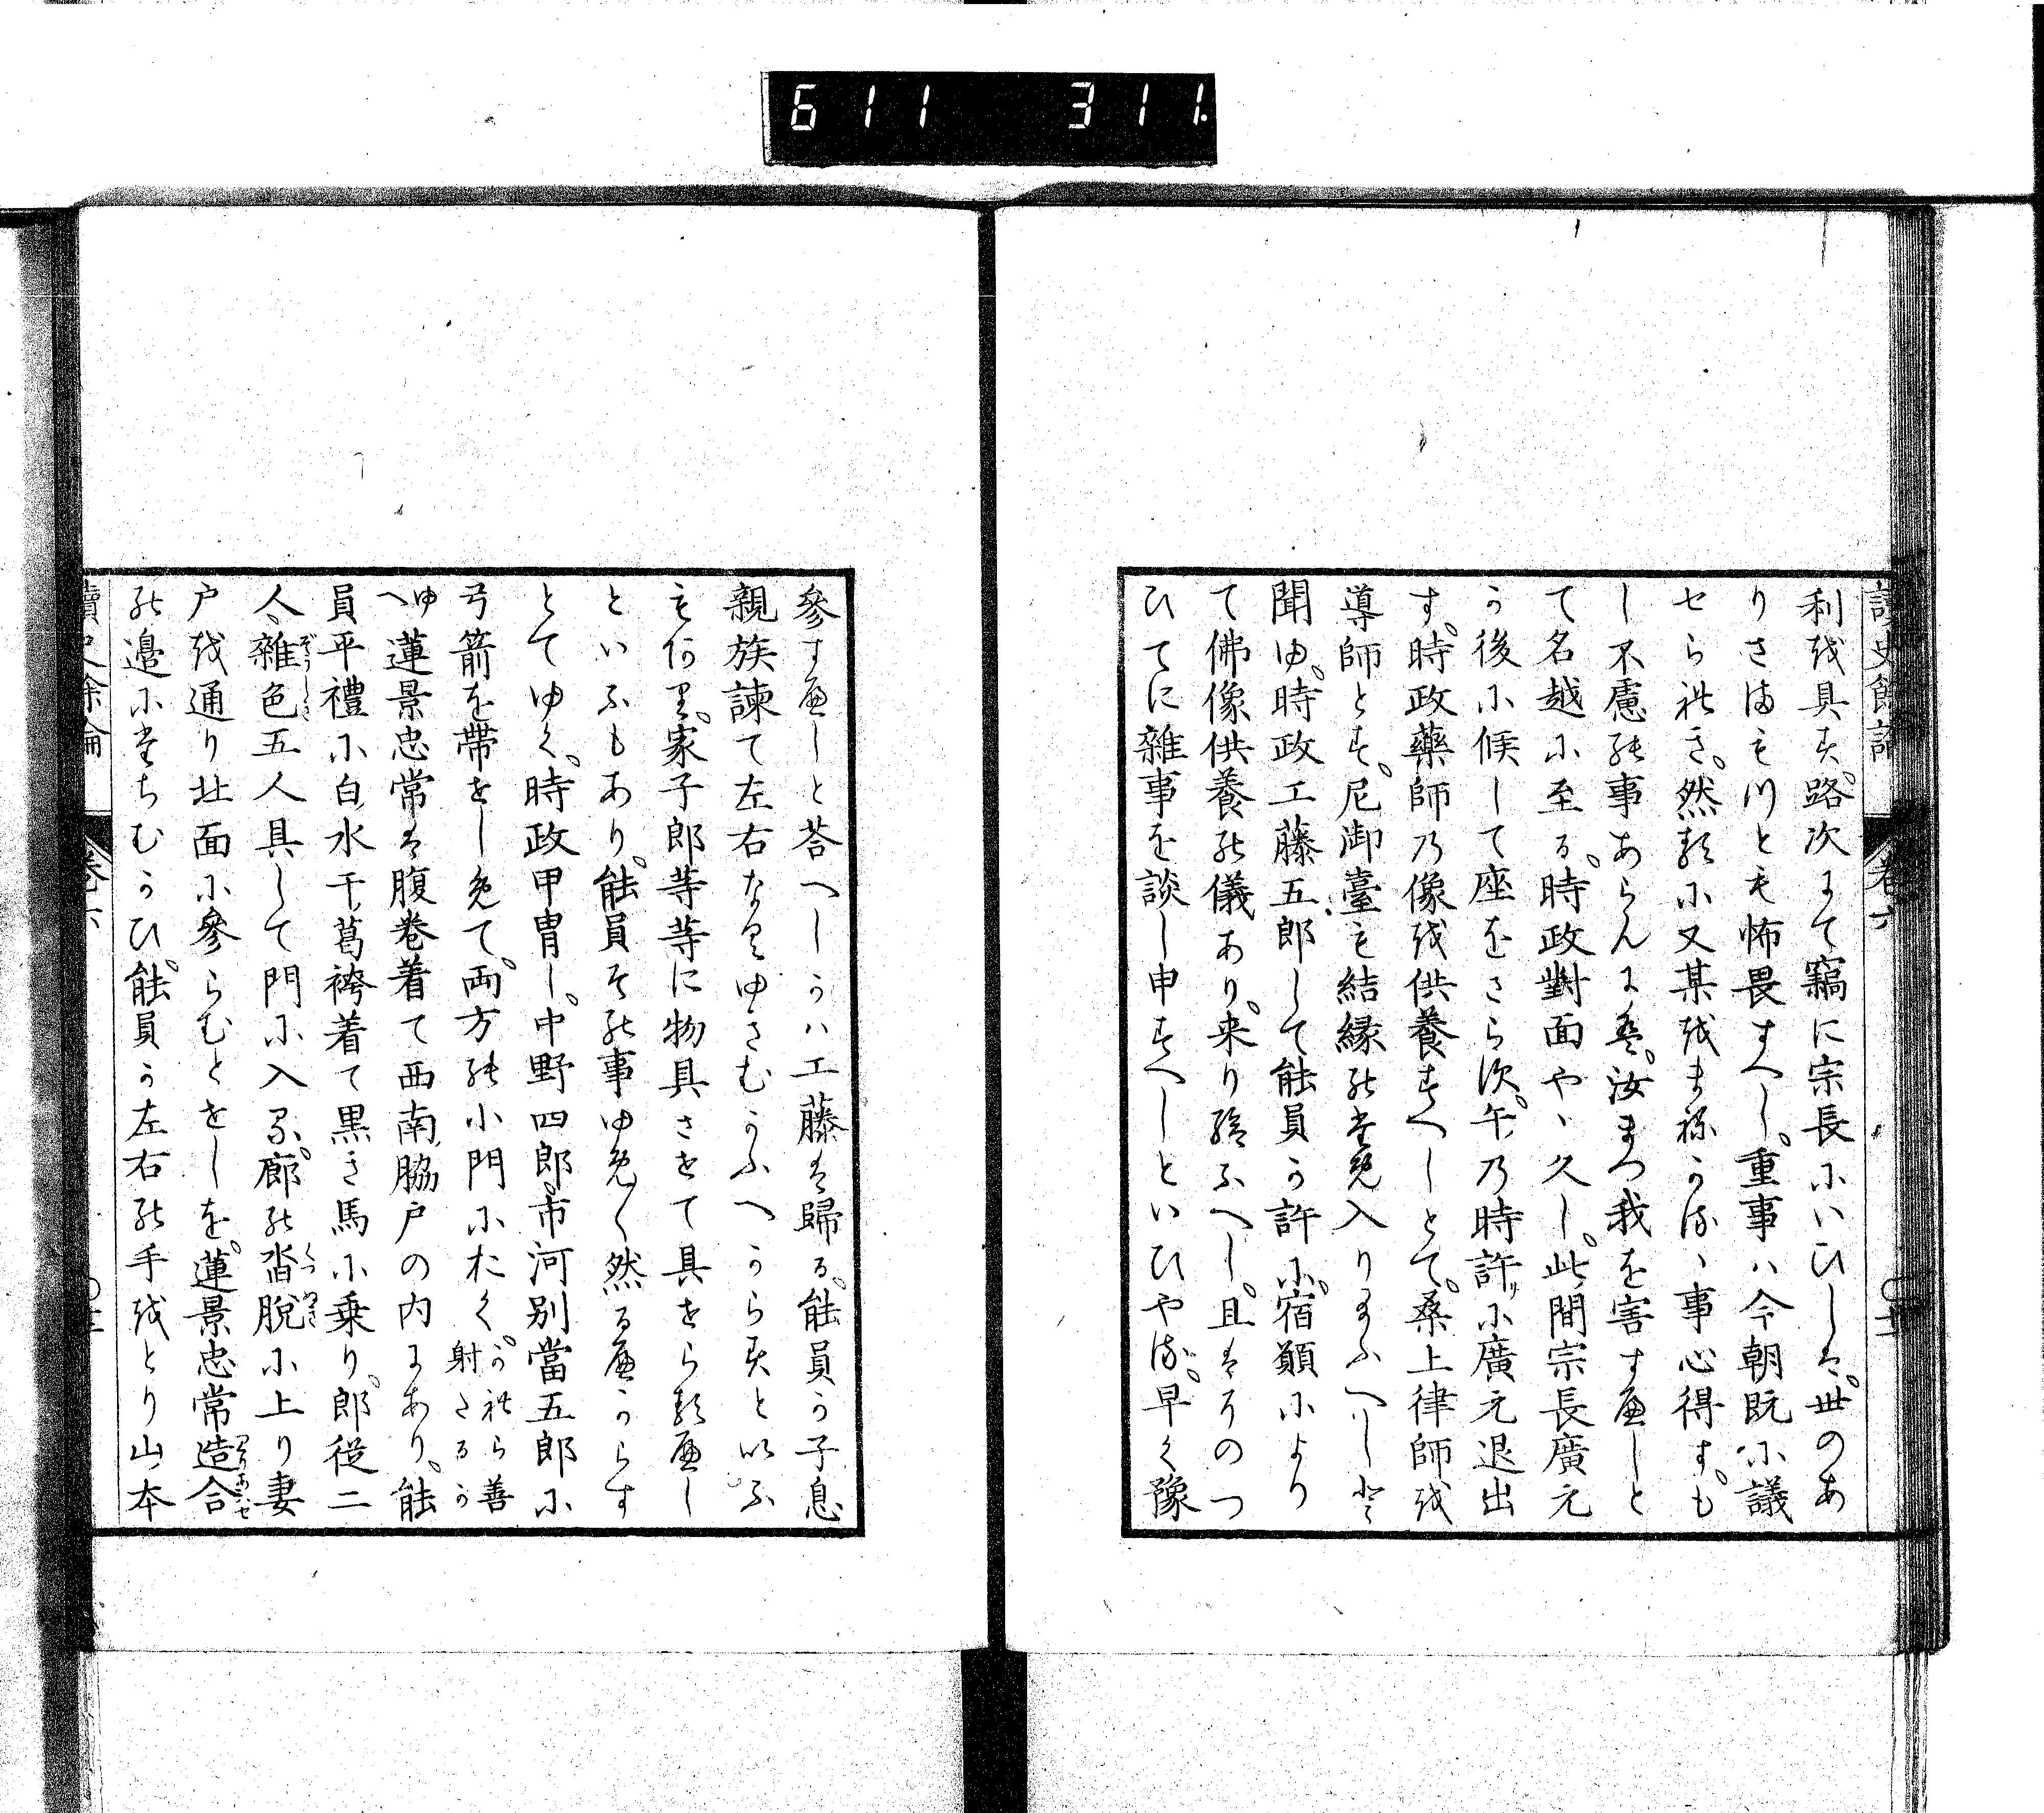 6 1 1 3 1 1.
讀史餘論 卷六
利越具す。路次にて竊に宗長にいひしは。世のあ
りさまもつとも怖畏すへし。重事ハ今朝既に議
せられき。然るに又某をまねかるゝ事心得す。も
し不慮の事あらんには。汝まつ我を害すへしと
て名越に至る。時政對面やゝ久し。此間宗長廣元
か後に候して座をさらす。午の時許に廣元退出
す。時政藥師の像を供養すへしとて。葉上律師を
導師とす。尼御臺も結縁のため入りまふへしと
聞ゆ。時政工藤五郎して能員か許に。宿願により
て佛像供養の儀あり。来り給ふへし。且はそのつ
ひてに雜事を談し申すへしといひやる。早く豫
參すへしと荅へしかハ工藤は歸る。能員か子息
親族諫て左右なくゆきむかふへからすといふ
も何り。家子郎等等に物具させて具せらるへし
といふもあり。能員その事ゆめ〱然るへからす
とてゆく。時政甲冑し。中野四郎市河別當五郎に
弓箭を帶せしめて。両方の小門におく。かれら善射さるかゆへ
蓮景忠常は腹巻着て西南脇戸の内にあり。能
員平禮に白水干葛袴着て黒き馬に乗り。郎従二
人雜色五人具して門に入る。廊の沓脱に上り妻
戸を通り北面に參らむとせしを。蓮景忠常造合
の邊にたちむかひ。能員か左右の手をとり山本
讀史餘論 卷六